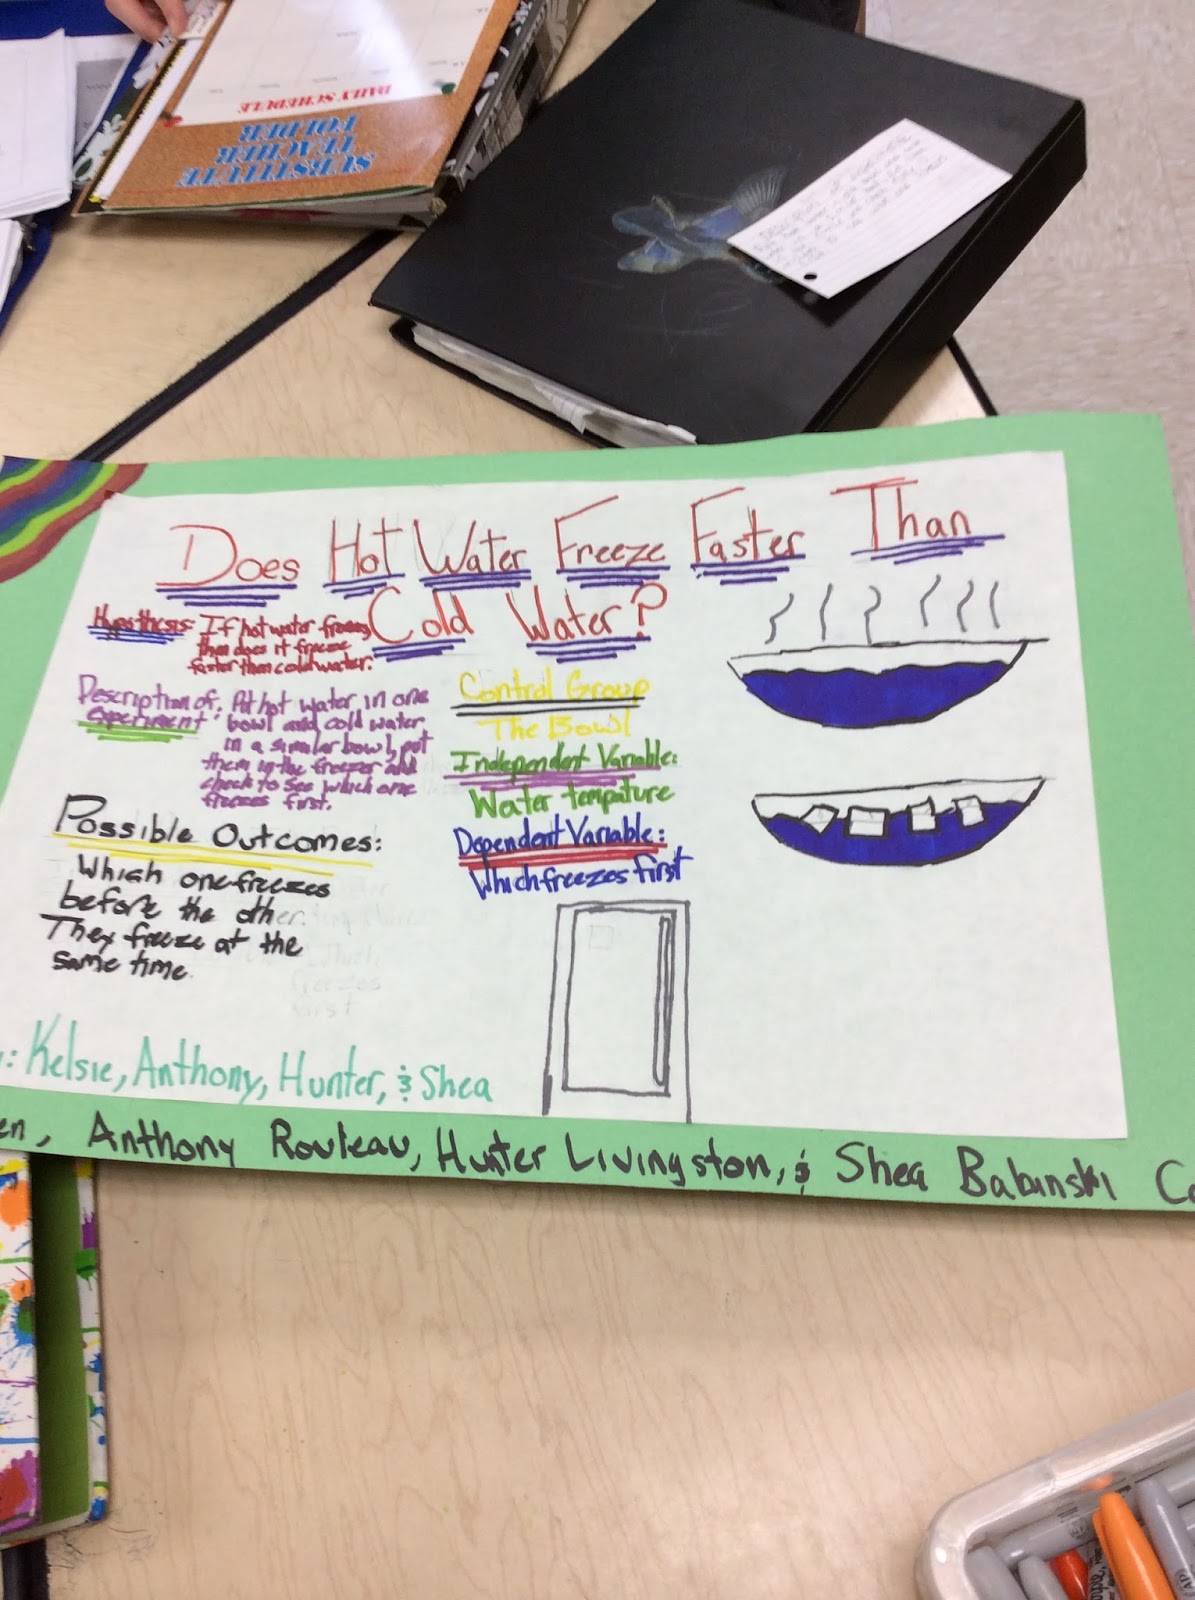 DAILY SCHEDULE
SUBSTITUTE
TEACHER
FOLDER
Does Hot Water Freeze Faster Than
Cold Water?
Hypothesis: If hot water freezes
then does it freeze
faster then cold water.
Description of
experiment:
Put hot water in one
bowl and cold water
in a similar bowl, put
them in the freezer and
check to see which one
freezes first.
Possible Outcomes:
Which one freezes
before the other.
They freeze at the
same time.
Control Group
The Bowl
Independent Variable:
Water tempature
Dependent Variable:
Which freezes first
: Kelsie, Anthony, Hunter, & Shea
en, Anthony Rouleau, Hunter Livingston, & Shea Babinski